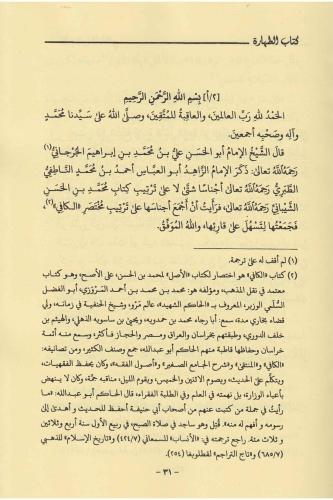 كتاب الطهارة
[٢/أ] بِسْمِ اللهِ الرَّحْمَنِ الرَّحِيمِ
الحَمْدُ للهِ رَبِّ العالمِينَ، والعاقِبةُ للمُتَّقِينَ، وصلَّى اللهُ علىٰ سَيِّدِنا مُحَمَّدٍ
وآلِهِ وصَحْبِهِ أجمعينَ.
قالَ الشَّيْخُ الإمامُ أبو الحَسَنِ عَلِيُّ بنُ مُحَمَّدِ بنِ إبراهيمَ الجُرْجانِيُّ(١)
رَحِمَهُ اللهُ تعالىٰ: ذَكَرَ الإمامُ الزَّاهِدُ أبو العبَّاسِ أحمدُ بنُ مُحَمَّدٍ النَّاطِفِيُّ
الطَّبَرِيُّ رَحِمَهُ اللهُ تعالىٰ أجناسًا شتَّىٰ لا علىٰ تَرْتِيبِ كِتابِ مُحَمَّدِ بنِ الحَسَنِ
الشَّيْبانِيِّ رَحِمَهُ اللهُ تعالىٰ، فرَأَيتُ أنْ أَجْمَعَ أجناسَها علىٰ تَرْتِيبِ مُخْتَصَرِ «الكافِي»(٢)،
فجَمَعْتُها لِتَسْهُلَ علىٰ قارِئِها، واللهُ المُوَفِّقُ.
(١) لم أقف له على ترجمة.
(٢) كتاب «الكافي» هو اختصار لكتاب «الأصل» لمحمد بن الحسن، على الأصح، وهو كتاب
معتمد في نقل المذهب، ومؤلفه هو: محمد بن محمد بن أحمد المَرْوَزي، أبو الفضل
السُّلمي الوزير، المعروف بـ «الحاكم الشهيد»، عالم مَرْو، وشيخ الحنفية في زمانه، ولي
قضاء بخارى مدة، سمع: أبا رجاء محمد بن حمدويه، ويحيى بن ساسويه الذهلي، والهيثم بن
خلف الدوري، وطبقتهم بخراسان والعراق ومصر والحجاز فأكثر، وسمع منه أئمة
خراسان وحفاظها قاطبة منهم الحاكم أبو عبدالله، جمع وصنف الكثير، ومن تصانيفه:
«الكافي» و«المنتقى» و«شرح الجامع الصغير» و«أصول الفقه»، وكان يحفظ الفقهيات،
ويتكلَّم على الحديث، ويصوم الاثنين والخميس، ويقوم الليل، مناقبه جمَّة، وكان لا ينهض
بأعباء الوزارة، بل نهمته في العلم وفي الطلبة الفقراء، قال الحاكم أبو عبدالله: «ما
رأيت في جملة من كتبت عنهم من أصحاب أبي حنيفة أحفظ للحديث و أهدى إلى
رسومه و أفهم له منه». قُتِل وهو ساجد في صلاة الصبح، في ربيع الآخر سنة أربع وثلاثين
و ثلاث مئة. راجع ترجمته في: «الأنساب» للسمعاني (٤٢٤/٧) و«تاريخ الإسلام» للذهبي
(٦٨٥/٧) و«تاج التراجم» لقطلوبغا (٢٥٤)
- ٣١ -